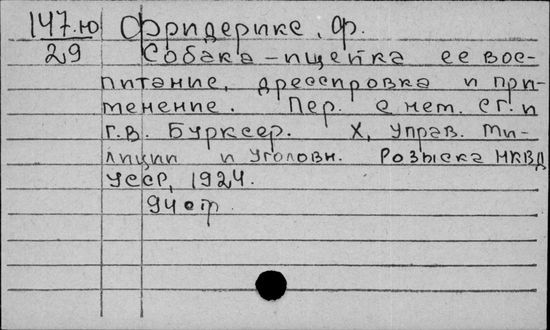 147.ю Фридерике, Ф.
29 Собака-ищейка ее вос-
питание, дрессировка и при-
менение. Пер. с нем. С.Г. и
Г.В. Бурксер. Х, Управ. Ми-
лиции и Уголовн. Розыска НКВД
УССР, 1924.
94 стр.